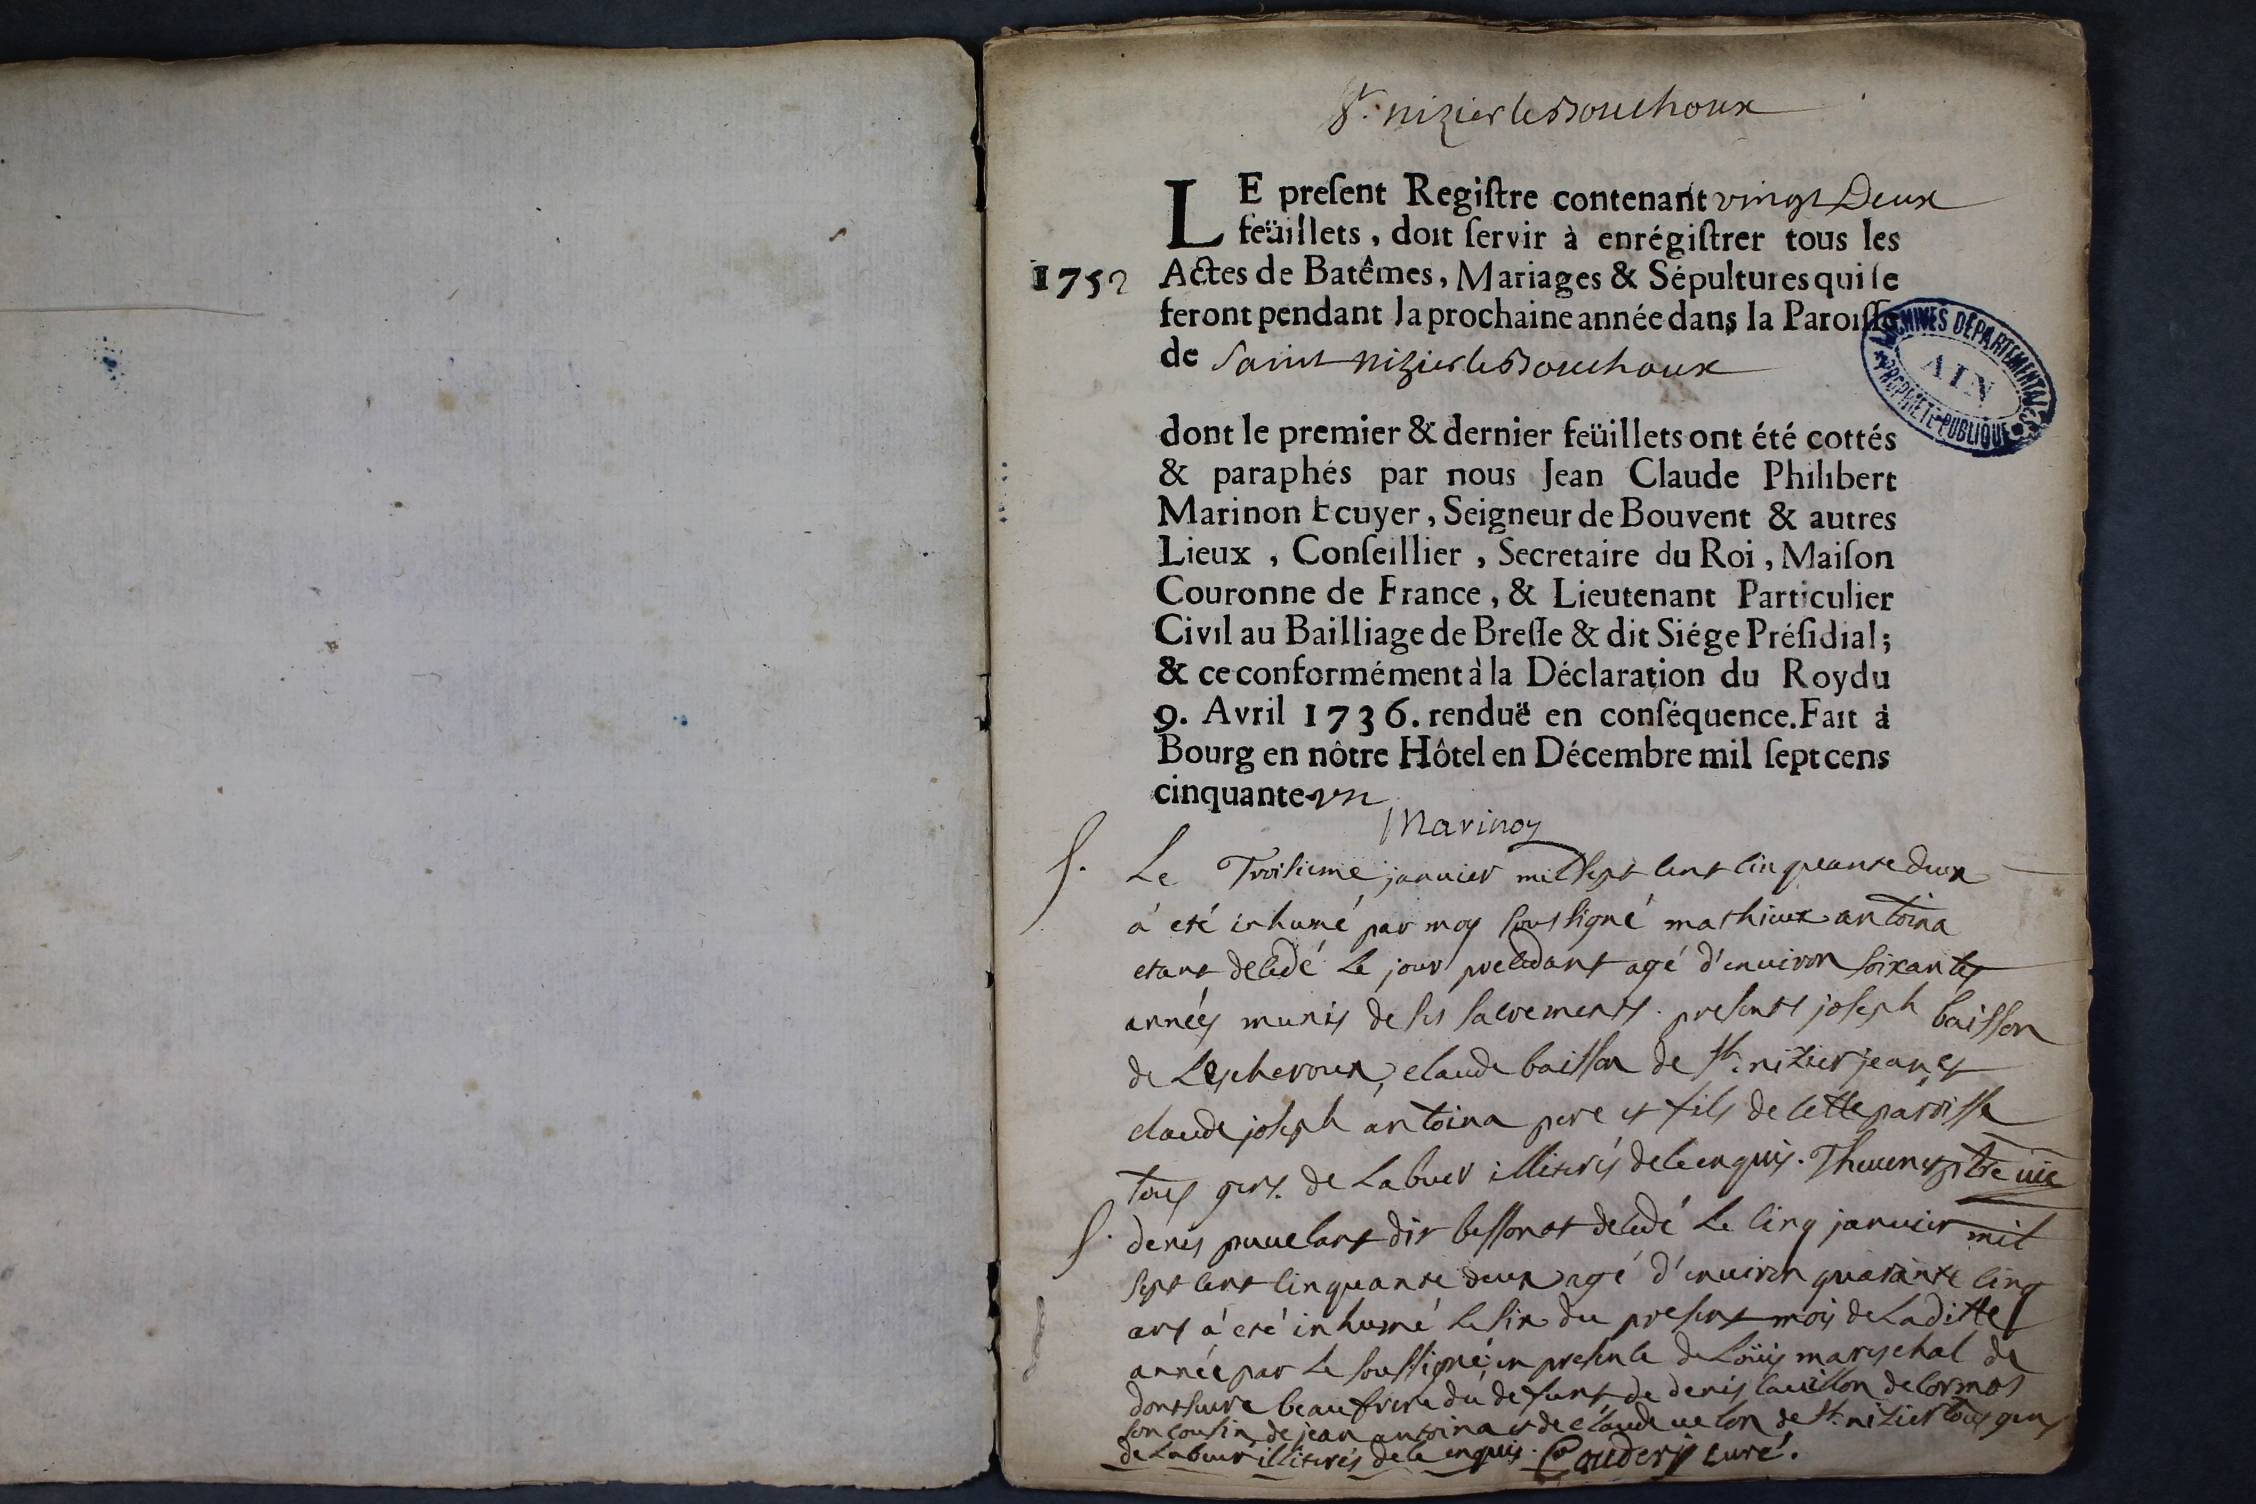 St. nizier le Bouchoux
LE preſent Regiſtre contenant vingt Deux
feüillets, doit ſervir à enrégiſtrer tous les
1752
Actes de Batêmes, Mariages & Sépultures qui ſe
feront pendant la prochaine année dans la Paroiſſe
de Saint nizier le Bouchoux
ARCHIVES DÉPARTEMENTALES
AIN
PROPRIÉTÉ PUBLIQUE
dont le premier & dernier feüillets ont été cottés
& paraphés par nous Jean Claude Philibert
Marinon Ecuyer, Seigneur de Bouvent & autres
Lieux, Conſeillier, Secretaire du Roi, Maiſon
Couronne de France, & Lieutenant Particulier
Civil au Bailliage de Breſſe & dit Siége Préſidial;
& ce conformément à la Déclaration du Roy du
9. Avril 1736. renduë en conſéquence. Fait à
Bourg en nôtre Hôtel en Décembre mil ſept cens
cinquante-vn
Marinon
S. Le Troisieme janvier mil sept cent cinquante deux
á eté inhumé par moy soussigné mathieux antoina
etant decedé Le jour precedant agé d'environ soixantes
années munis de ses sacrements. presents joseph baisson
de Lescheroux, claude baisson de st. nizier jean et
claude joseph antoina pere et fils de cette paroisse
tous gens de Labeur illiterés de ce enquis. Thevenet ptre vic
S. denis puvelant dit bessonat decedé Le cinq janvier mil
sept cent cinquante deux agé d'environ quarante cinq
ans á eté inhumé Le six du present mois de Laditte
année par Le soussigné, en presence de Loüis mareschal de
domsure beaufrere du defunt de denis cavillon de cormos
son cousin de jean antoina et de claude velon de st. nizier tous gens
de Labeur illiterés de ce enquis. Couderis curé.